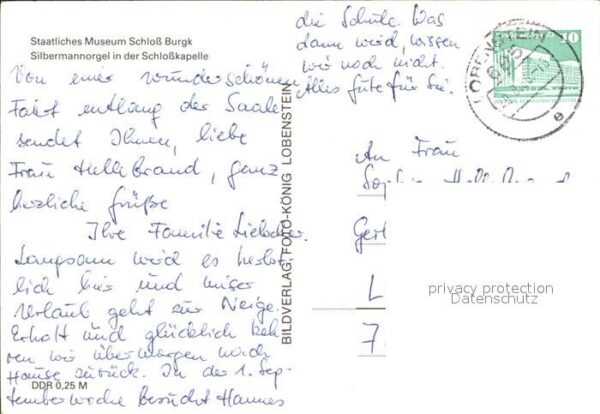 Staatliches Museum Schloß Burgk
Silbermannorgel in der Schloßkapelle
Von einer wunderschönen
Fahrt entlang der Saale
sendet Ihnen, liebe
Frau Hellebrand, ganz
herzliche Grüße
Ihre Familie
Langsam wird es herbst-
lich hier und unser
Urlaub geht zur Neige.
Erholt und glücklich keh-
ren wir übermorgen nach
Hause zurück. In der 1. Sep-
temberwoche besucht Hannes
die Schule. Was
dann wird, wissen
wir noch nicht.
Alles Gute für Sie!
DDR 0,25 M
BILDVERLAG, FOTO-KÖNIG LOBENSTEIN
10
An Frau
L
7
privacy protection
Datenschutz